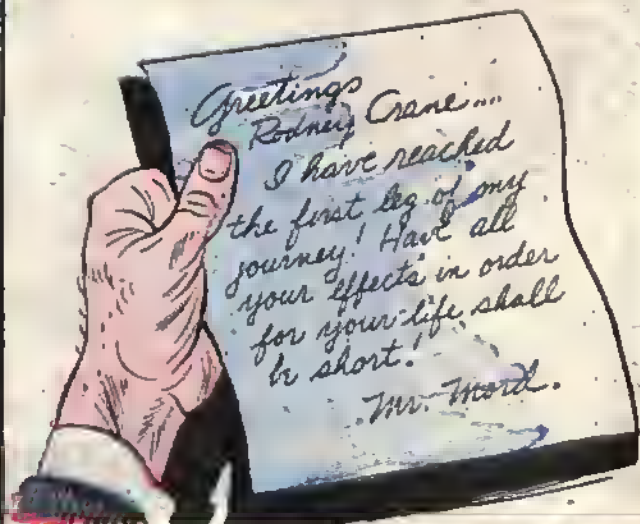 Greetings
Rodney Crane....
I have reached
the first leg of my
journey! Have all
your effects in order
for your life shall
be short!
Mr. Mord.